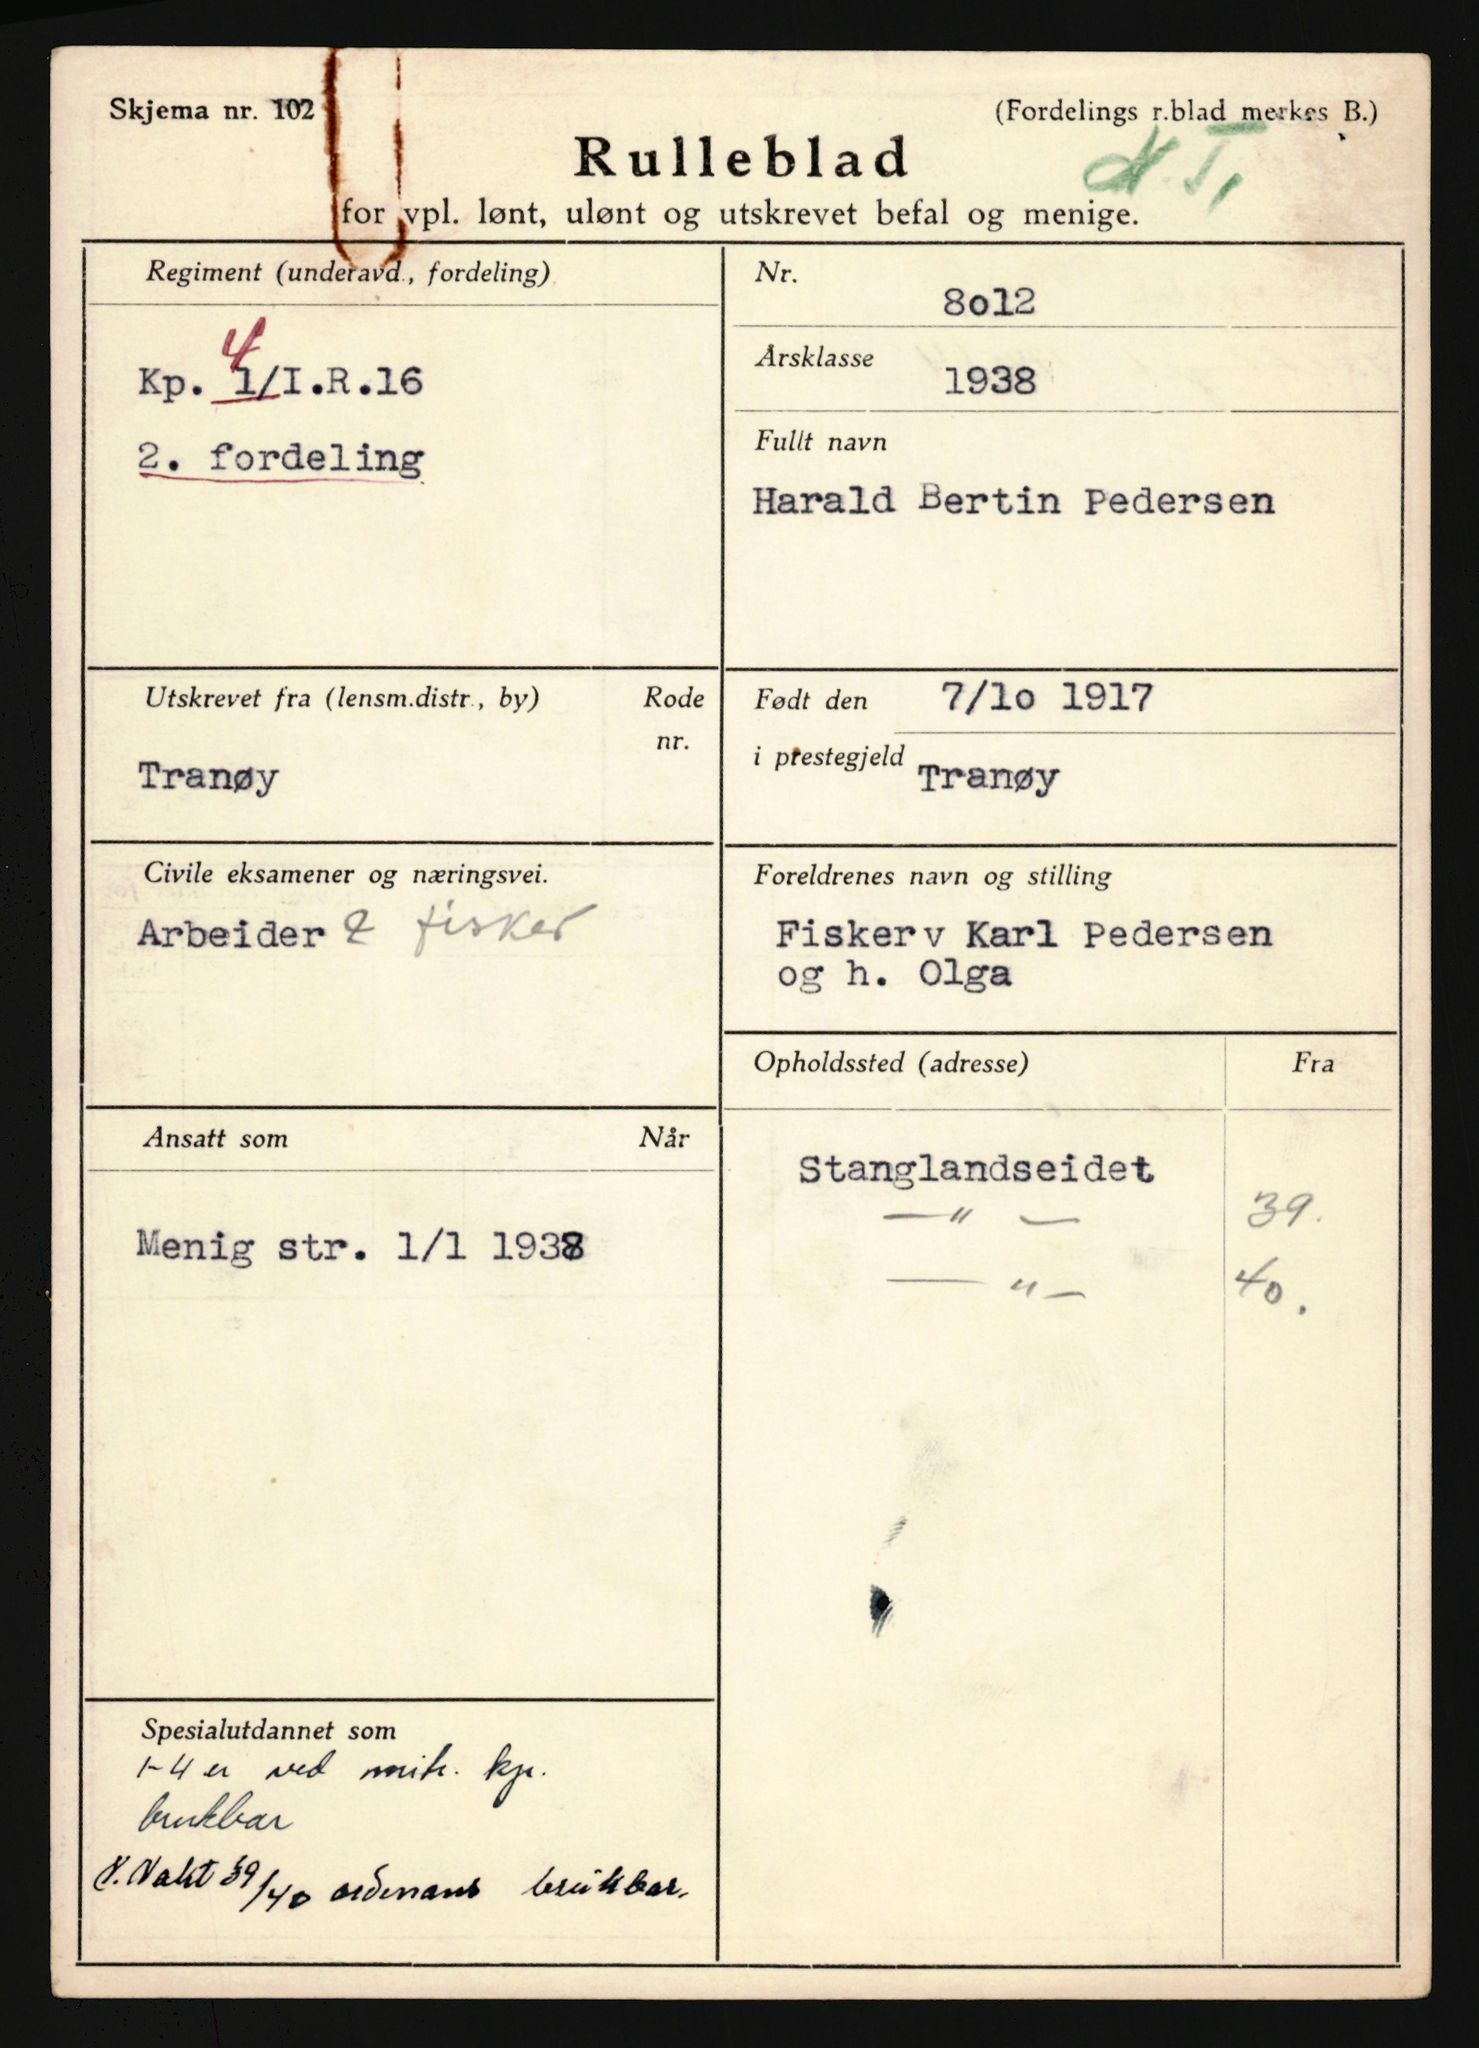 Skjema nr. 102
(Fordelings r.blad merkes B.)
Rulleblad
for vpl. lønt, ulønt og utskrevet befal og menige.
Regiment (underavd., fordeling)
4
Kp. 1/I.R.16
2. fordeling
Nr.
8o12
Årsklasse
1938
Fullt navn
Harald Bertin Pedersen
Utskrevet fra (lensm.distr., by)
Rode
nr.
Tranøy
Født den 7/1o 1917
i prestegjeld Tranøy
Civile eksamener og næringsvei.
Arbeider & fisker
Foreldrenes navn og stilling
Fisker v Karl Pedersen
og h. Olga
Ansatt som
Når
Menig str. 1/1 1938
Opholdssted (adresse)
Fra
Stanglandseidet
—"— 39.
—"— 40.
Spesialutdannet som
1-4 er ved mitr. kp.
brukbar
N. Vakt 39/40 ordenans brukbar.